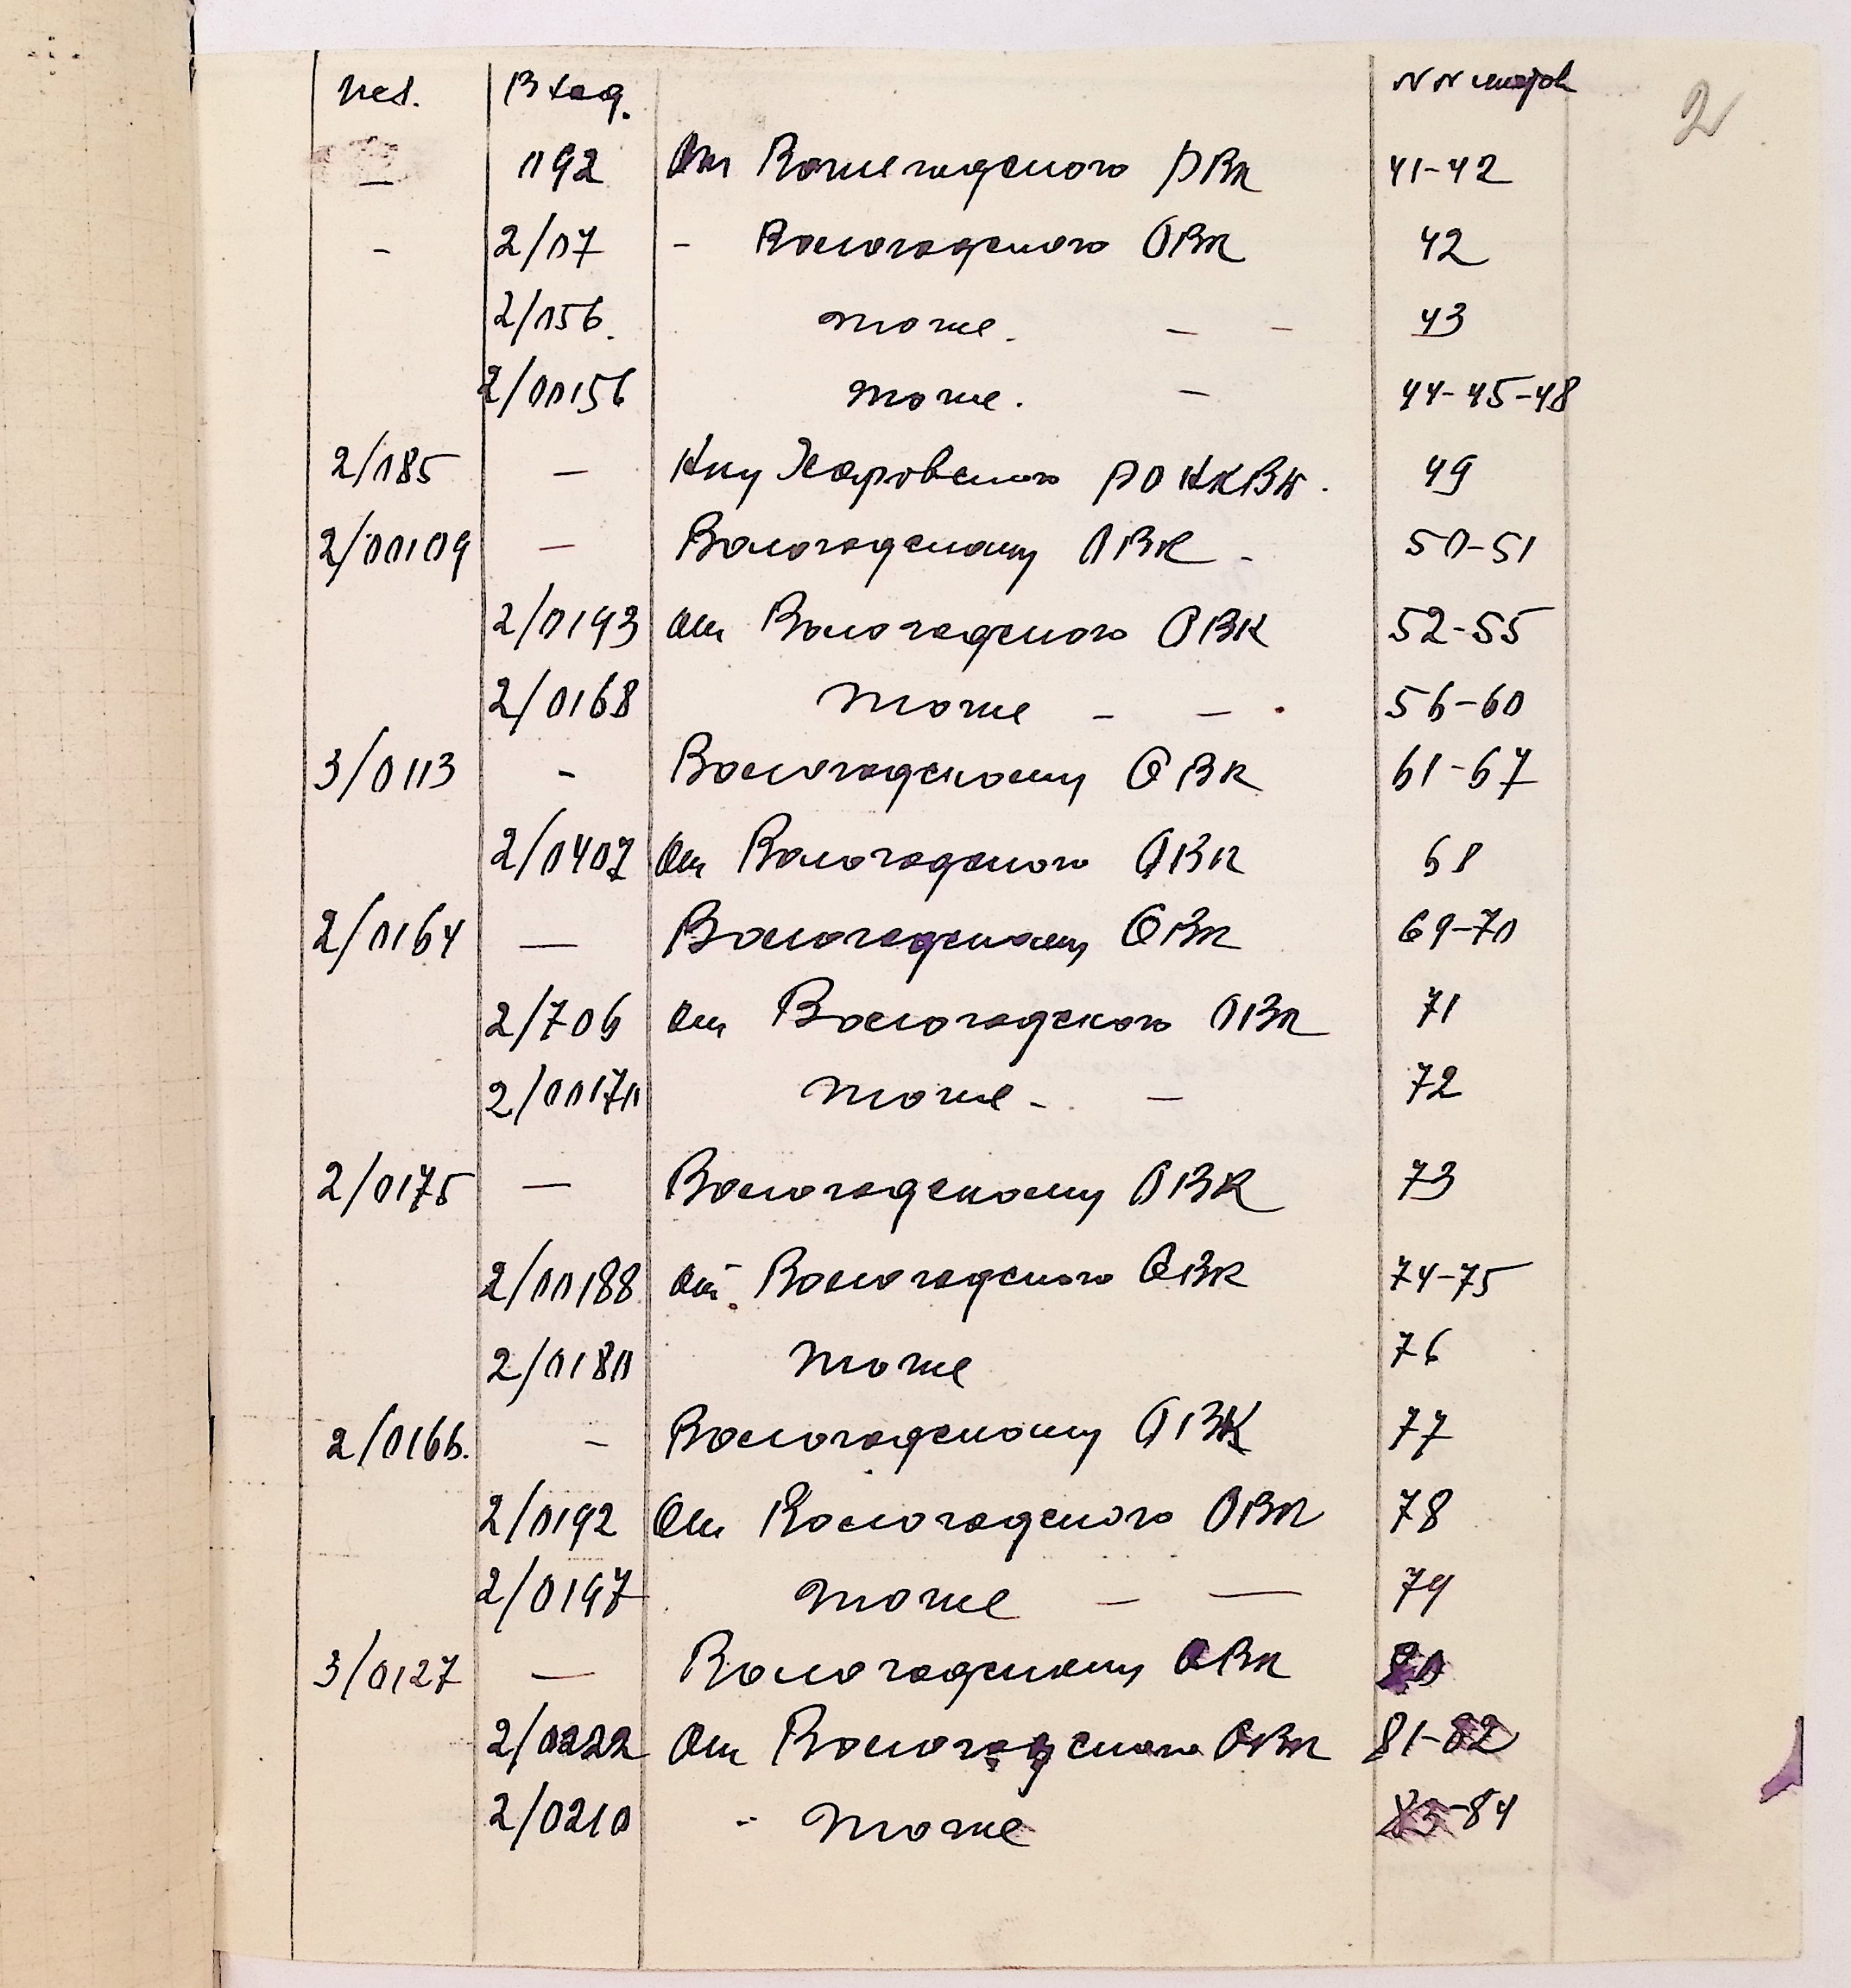 Исх. Вход. NN листов
2
— 092 От Вожегодского РВК 41-42
- 2/07 - Вологодского ОВК 42
2/056. тоже. — — 43
2/00156 тоже. — 44-45-48
2/085 — Нку Харовского РО НКВД. 49
2/00109 — Вологодскому ОВК - 50-51
2/0193 От Вологодского ОВК 52-55
2/0168 тоже — — 56-60
3/0113 - Вологодскому ОВК 61-67
2/0407 От Вологодского ОВК 68
2/0164 — Вологодскому ОВК 69-70
2/706 От Вологодского ОВК 71
2/00170 тоже - — 72
2/0175 — Вологодскому ОВК 73
2/00188 От Вологодского ОВК 74-75
2/0180 тоже 76
2/0166. - Вологодскому ОВК 77
2/0192 От Вологодского ОВК 78
2/0197 тоже — — 79
3/0127 — Вологодскому ОВК 80
2/0222 От Вологодского ОВК 81-82
2/0210 - тоже 83-84